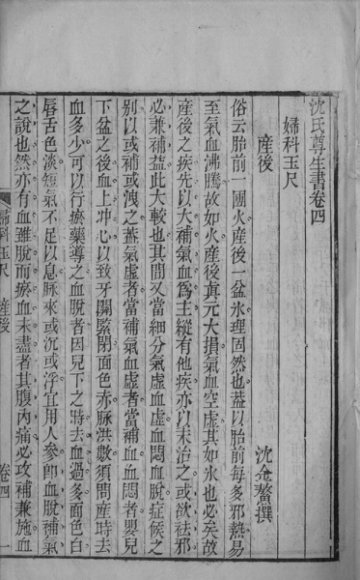 沈氏尊生書卷四
婦科玉尺
沈金鰲撰
產後
俗云胎前一團火產後一盆氷理固然也蓋以胎前每多邪熱易
至氣血沸騰故如火產後眞元大損氣血空虛其如氷也必矣故
產後之疾先以大補氣血爲主縱有他疾亦以末治之或欲祛邪
必兼補益此大較也其間又當細分氣虛血虛血悶血脫症候之
別以或補或洩之蓋氣虛者當補氣血虛者當補血血悶者嬰兒
下盆之後血上冲心以致牙關緊閉面色赤脉洪數須問產時去
血多少可以行瘀藥導之血脫者因兒下之時去血過多面色白
唇舌色淡短氣不足以息脉來或沉或浮宜用人參卽血脫補氣
之說也然亦有血雖脫而瘀血未盡者其腹內痛必攻補兼施血
婦科玉尺　產後　卷四　一